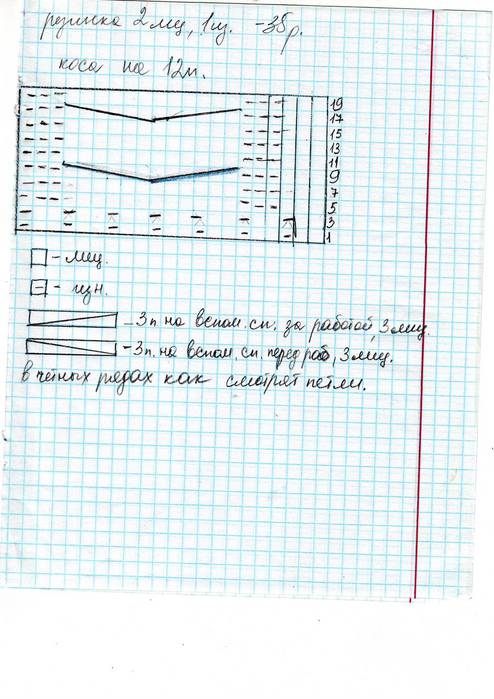 резинка 2 лиц, 1 и. - 35 р.
коса на 12 п.
19
17
15
13
11
9
7
5
3
1
- лиц.
- изн.
- 3 п. на вспом. сп. за работой, 3 лиц.
- 3 п. на вспом. сп. перед раб, 3 лиц.
в чётных рядах как смотрят петли.